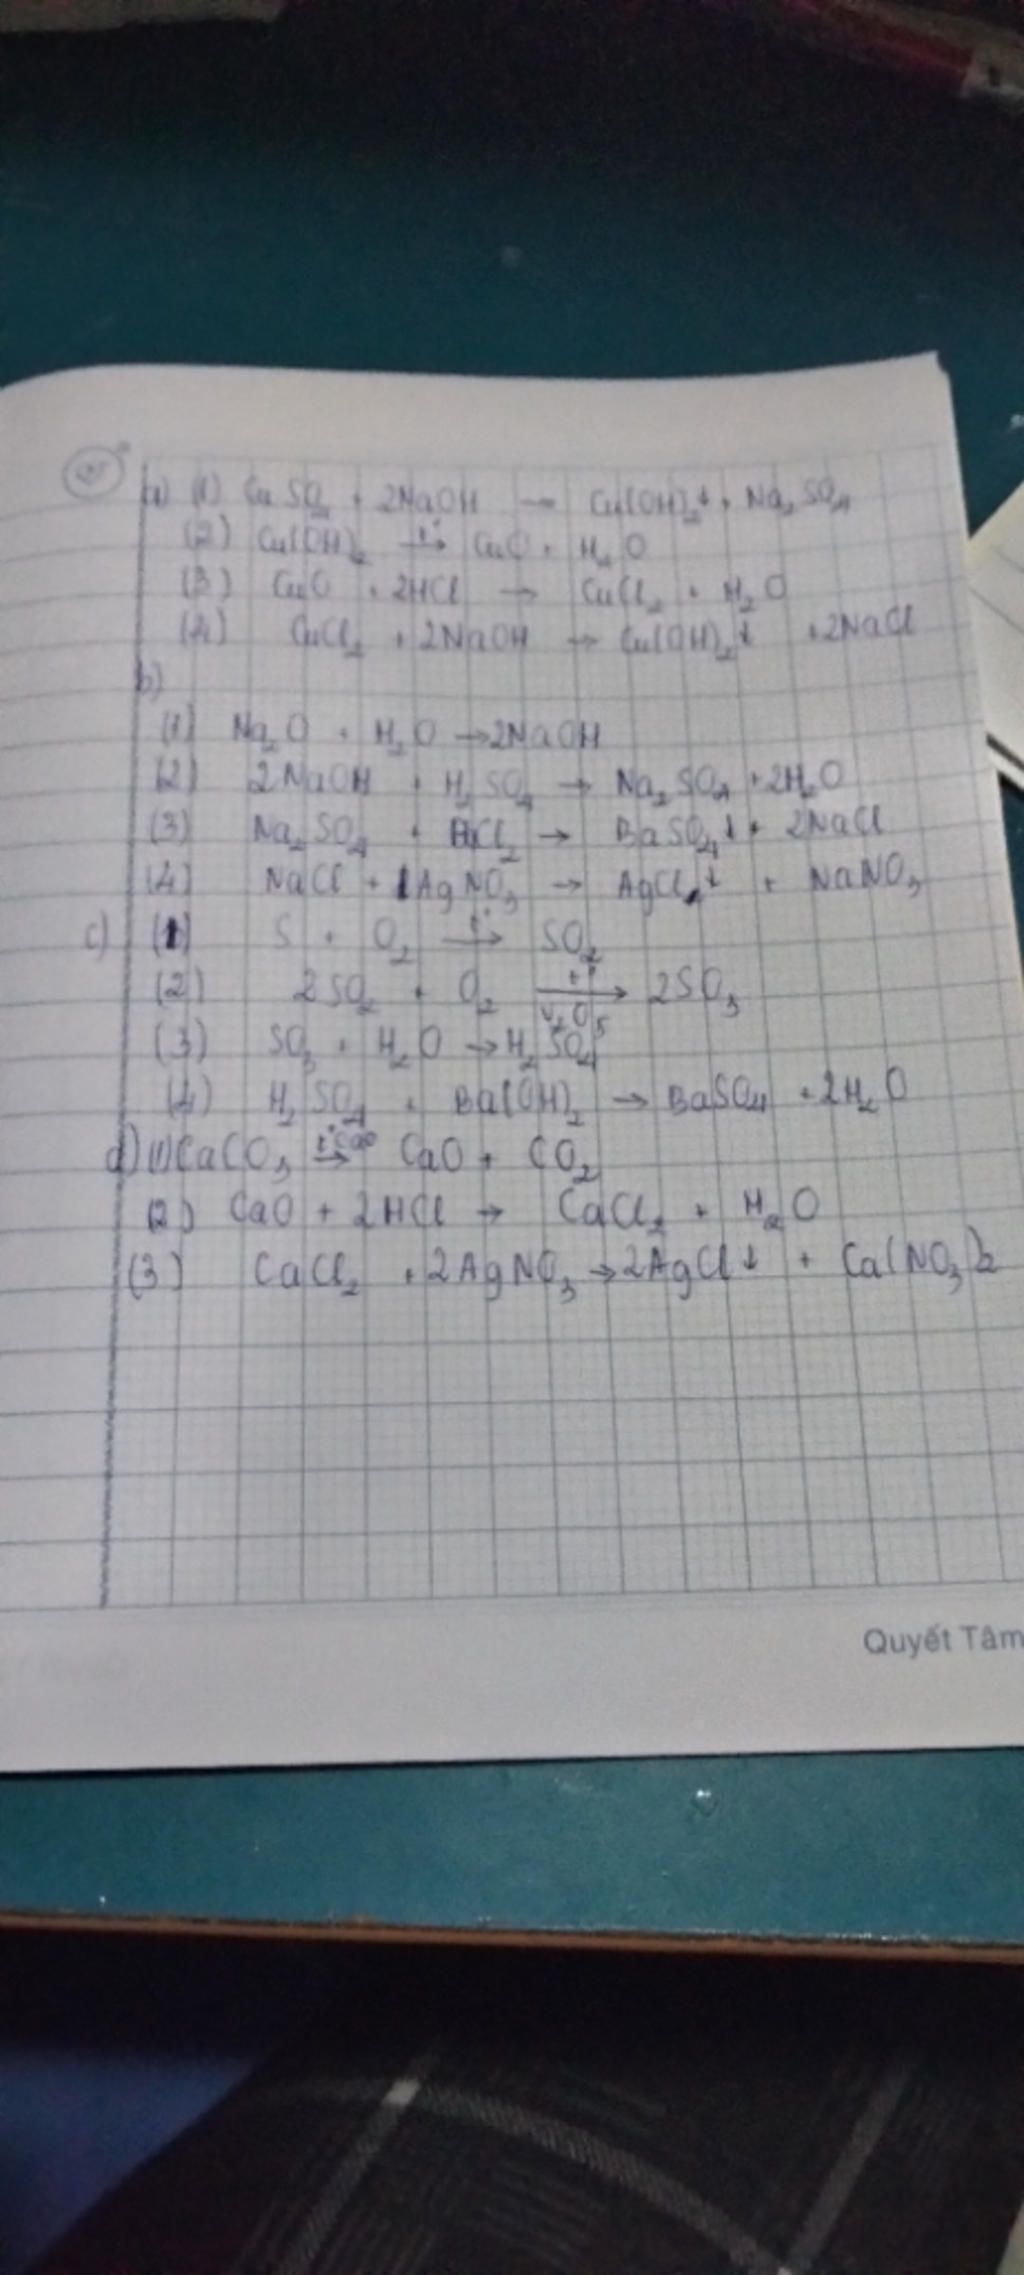 a) (1) CuSO₄ + 2NaOH → Cu(OH)₂↓ + Na₂SO₄
(2) Cu(OH)₂ →(t°) CuO + H₂O
(3) CuO + 2HCl → CuCl₂ + H₂O
(4) CuCl₂ + 2NaOH → Cu(OH)₂↓ + 2NaCl
b)
(1) Na₂O + H₂O → 2NaOH
(2) 2NaOH + H₂SO₄ → Na₂SO₄ + 2H₂O
(3) Na₂SO₄ + BaCl₂ → BaSO₄↓ + 2NaCl
(4) NaCl + AgNO₃ → AgCl↓ + NaNO₃
c) (1) S + O₂ →(t°) SO₂
(2) 2SO₂ + O₂ →(t°, V₂O₅) 2SO₃
(3) SO₃ + H₂O → H₂SO₄
(4) H₂SO₄ + Ba(OH)₂ → BaSO₄ + 2H₂O
d) (1) CaCO₃ →(t° cao) CaO + CO₂
(2) CaO + 2HCl → CaCl₂ + H₂O
(3) CaCl₂ + 2AgNO₃ → 2AgCl↓ + Ca(NO₃)₂
Quyết Tâm